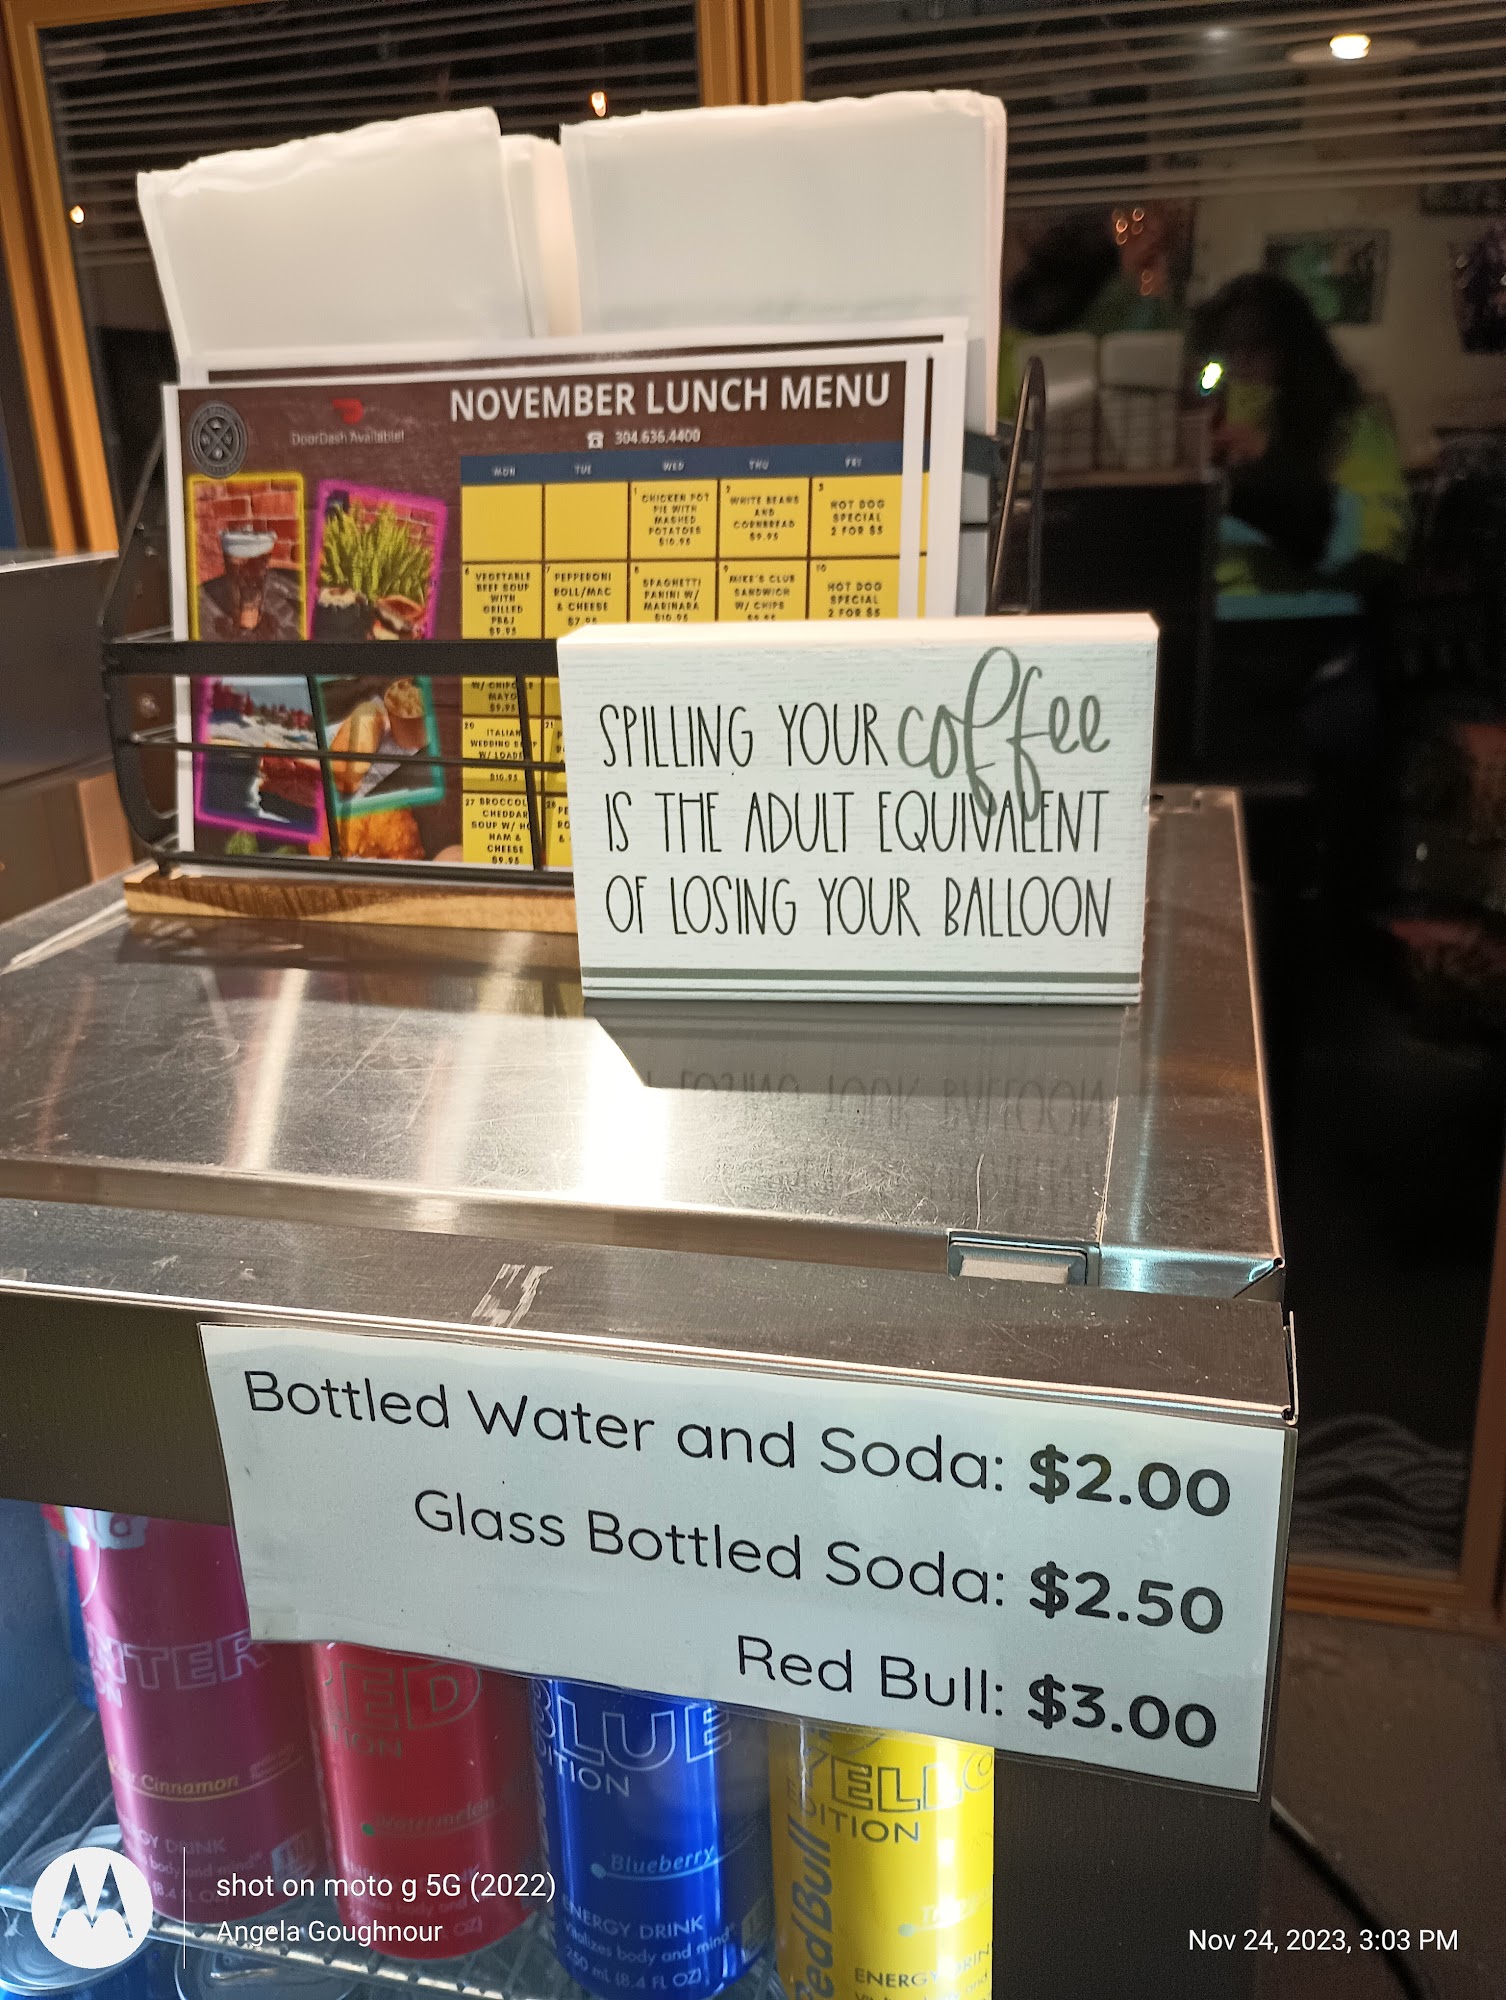 NOVEMBER LUNCH MENU
DoorDash Available!
304.636.4400
MON TUE WED THU FRI
1
CHICKEN POT
PIE WITH
MASHED
POTATOES
$10.95
2
WHITE BEANS
AND
CORNBREAD
$9.95
3
HOT DOG
SPECIAL
2 FOR $5
6
VEGETABLE
BEEF SOUP
WITH
GRILLED
PB&J
$9.95
7
PEPPERONI
ROLL/MAC
& CHEESE
$7.95
8
SPAGHETTI
PANINI W/
MARINARA
$10.95
9
MIKE'S CLUB
SANDWICH
W/ CHIPS
10
HOT DOG
SPECIAL
2 FOR $5
MAYO
$9.95
20
ITALIAN
WEDDING
W/
$10.95
21
27
CHEDDAR
SOUP W/
HAM &
CHEESE
$9.95
28
SPILLING YOUR coffee
IS THE ADULT EQUIVALENT
OF LOSING YOUR BALLOON
Bottled Water and Soda: $2.00
Glass Bottled Soda: $2.50
Red Bull: $3.00
NTER
ED
BLUE
YELLO
TION
DITION
DITION
Cinnamon
Watermelon
Blueberry
RedBull
GY DRINK
ENERGY DRINK
Vitalizes body and mind
250 mL (8.4 FL OZ)
ENERGY DRIN
shot on moto g 5G (2022)
Angela Goughnour
Nov 24, 2023, 3:03 PM